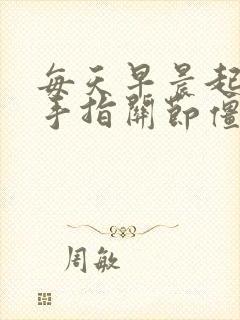 每天早晨起
手指关节僵
周敏